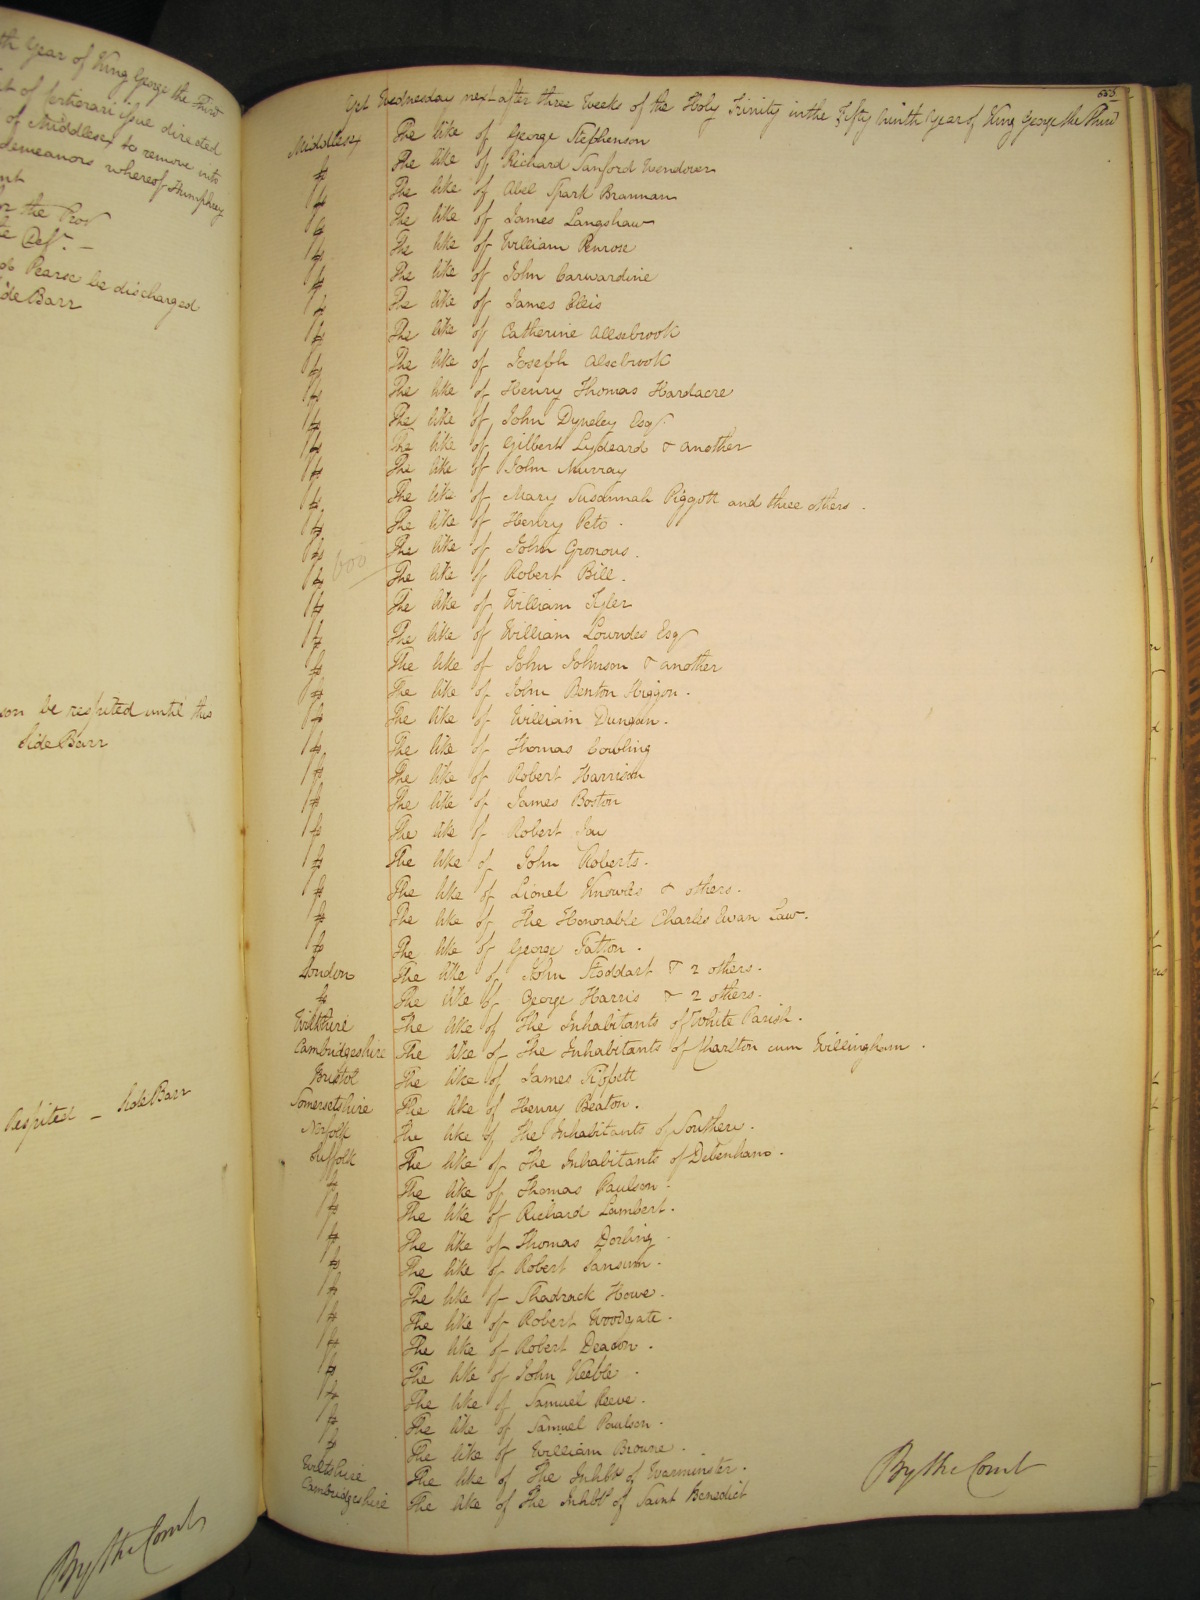 th Year of King George the Third
t of Certiorari issue directed
of Middlesex to remove into
demeanors whereof Humphrey
nt
for the Pros
te Def.t –
Pearse be discharged
Side Barr
son be respited until this
Side Barr
Respited – Side Barr
By the Court
635
Yet Wednesday next after three Weeks of the Holy Trinity in the Fifty Ninth Year of King George the Third
Middlesex The like of George Stephenson
The like of Richard Sanford Wendover
The like of Abel Spark Brannan
The like of James Langshaw
The like of William Penrose
The like of John Carwardine
The like of James Ellis
The like of Catherine Allsebrook
The like of Joseph Alsebrook
The like of Henry Thomas Hardacre
The like of John Dyneley Esqr.
The like of Gilbert Lydeard & another
The like of John Murray
The like of Mary Susannah Piggott and three others.
The like of Henry Peto.
The like of John Gronous.
600 The like of Robert Bill.
The like of William Tyler
The like of William Lowndes Esqr
The like of John Johnson & another
The like of John Benton Higgon.
The like of William Dungan.
The like of Thomas Cowling
The like of Robert Harrison
The like of James Boston
The like of Robert
The like of John Roberts.
The like of Lionel Knowles & others.
The like of The Honorable Charles Ewan Law.
The like of George Tatton.
London The like of John Stoddart & 2 others.
The like of George Harris & 2 others.
Wiltshire The like of The Inhabitants of White Parish.
Cambridgeshire The like of The Inhabitants of Charlton cum Willingham.
Bristol The like of James Tippett
Somersetshire The like of Henry Beaton.
Norfolk The like of The Inhabitants of Southery.
Suffolk The like of The Inhabitants of Debenham.
The like of Thomas Paulson.
The like of Richard Lambert.
The like of Thomas Dorling.
The like of Robert Sansum.
The like of Shadrack Howe.
The like of Robert Woodgate.
The like of Robert Deacon.
The like of John Keeble.
The like of Samuel Reeve.
The like of Samuel Paulson.
The like of William Browne.
Wiltshire The like of The Inhbts of Warminster.
Cambridgeshire The like of The Inhbts of Saint Benedict
By the Court